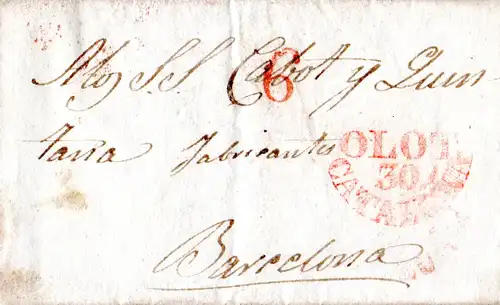 A los S.S. Cabot y Quin
6
tana Fabricantes
OLOT
30
CATALUÑA
Barcelona